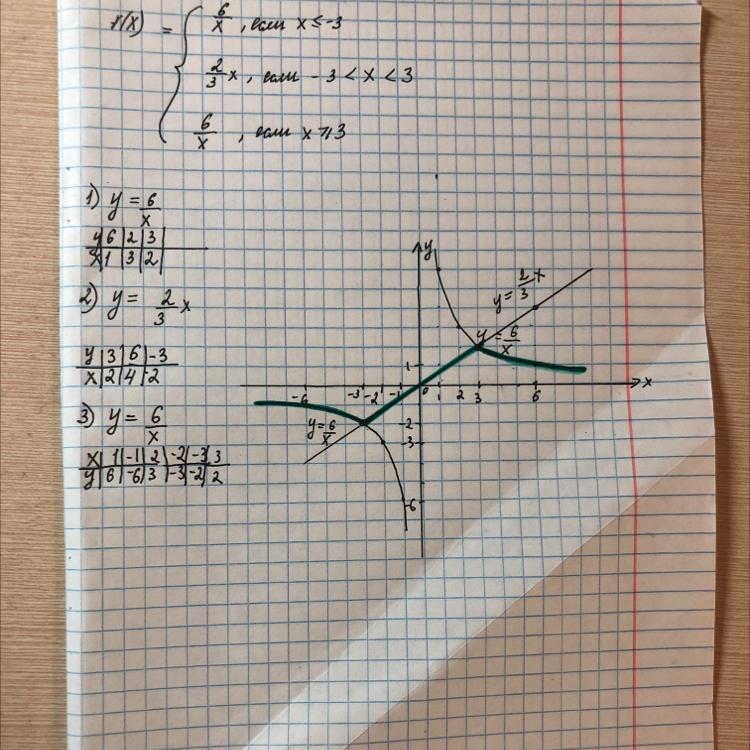 f(x) = { 6/x , если x ≤ -3
2/3 x , если -3 < x < 3
6/x , если x ⩾ 3
1) y = 6/x
y | 6 | 2 | 3
x | 1 | 3 | 2
2) y = 2/3 x
y | 3 | 6 | -3
x | 2 | 4 | -2
3) y = 6/x
x | 1 | -1 | 2 | -2 | -3 | 3
y | 6 | -6 | 3 | -3 | -2 | 2
y
y = 2/3 x
y = 6/x
1
-6 -3 -2 -1 0 1 2 3 6 x
y = 6/x
-2
-3
-6